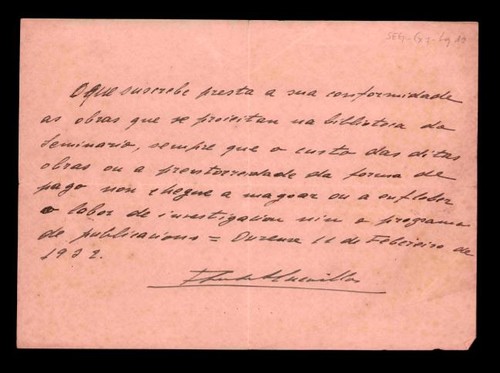 O que suscribe presta a sua conformidade
as obras que se proieitan na biblioteca do
Seminario, sempre que o custo das ditas
obras ou a da forma de
pago non chegue a magoar ou a
o labor de investigacion nin o programa
de publicacions = Ourense 16 de Febreiro de
1932.